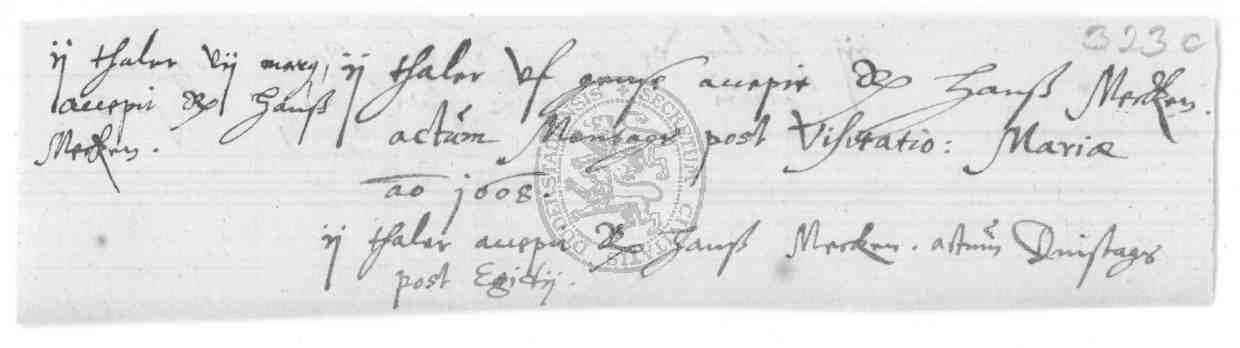 323c
ij thaler vij marg,
accepit Hanß
Mecken.
ij thaler vf accepit Hanß Mecken.
actum Montags post Visitatio: Mariæ
ao 1608.
ij thaler accepit Hanß Mecken. actum Dinstags
post Egidij.
SECRETUM CIVITATIS